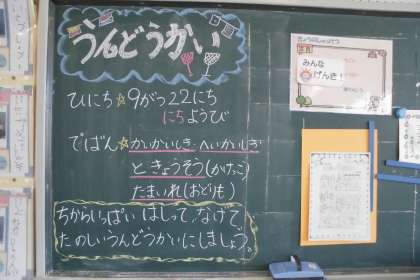 うんどうかい
ひにち☆9がつ22にち
にちようび
でばん☆かいかいしき・へいかいしき
ときょうそう(かけっこ)
たまいれ(おどりも)
ちからいっぱい はしって、なげて
たのしいうんどうかいにしましょう。
きょうのしゅっけつ
みんな
げんき!